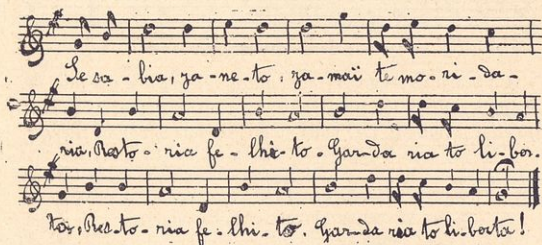 Se sa-bia, za-ne-to, za-maï te mo-ri-da-
ria, Resto-ria fe-lhi-to. Gar-da ria to li-ber-
tat, Res-to-ria fe-lhi-to. Gar-da ria to li-berta!